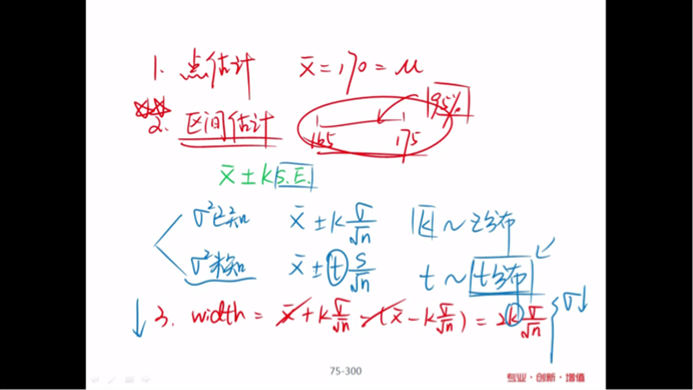 1. 点估计 x̄ = 170 = μ
95%
2. 区间估计 165 175
x̄ ± k S.E.
σ²已知 x̄ ± k σ/√n k ~ z分布
σ²未知 x̄ ± t s/√n t ~ t分布
↓ 3. width = x̄ + k σ/√n - (x̄ - k σ/√n) = 2k σ/√n σ↓
75-300
专业·创新·增值